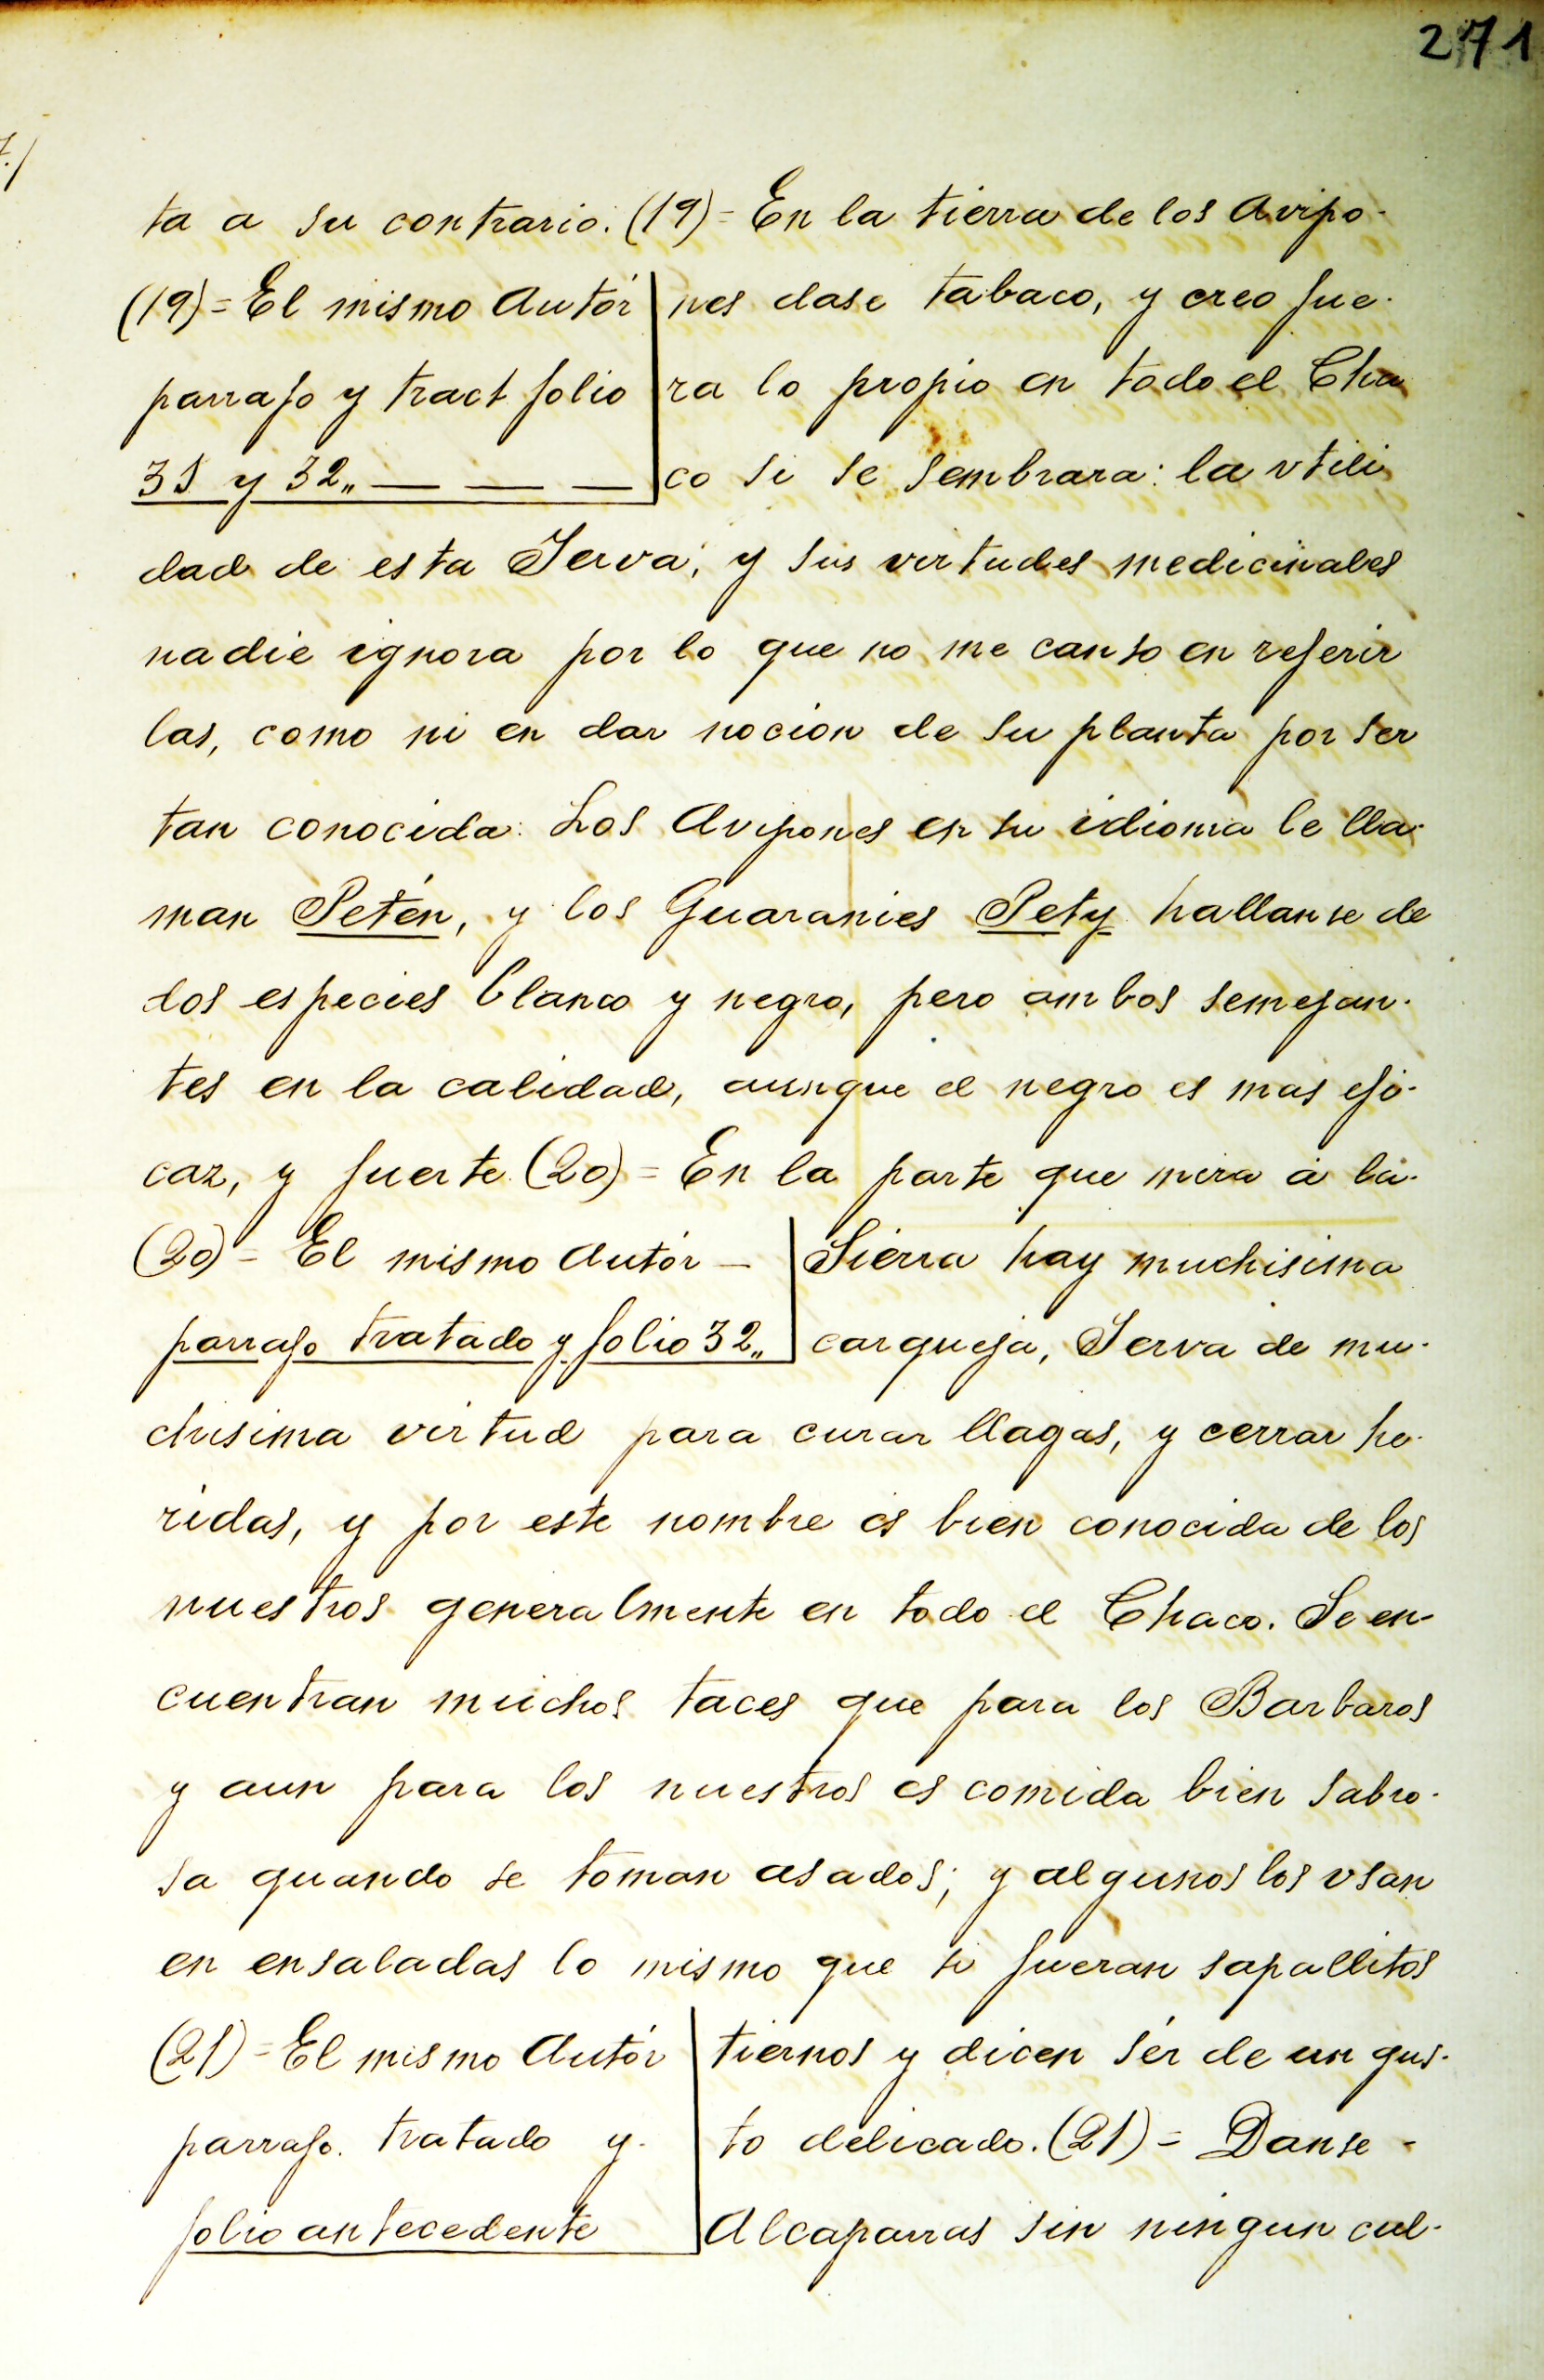 271
ta a su contrario. (19) = En la tierra de los Avipo-
(19) = El mismo Autór
parrafo y tract folio
31 y 32,, — — —
nes dase tabaco, y creo fue-
ra lo propio en todo el Cha
co si se sembrara: la vtili
dad de esta Jerva, y sus virtudes medicinales
nadie ignora por lo que no me canso en referir
las, como ni en dar nocion de su planta por ser
tan conocida: Los Avipones en su idioma le lla-
man Petén, y los Guaranies Pety hallanse de
dos especies blanco y negro, pero ambos semejan-
tes en la calidad, aunque el negro es mas efi-
caz, y fuerte (20) = En la parte que mira á la-
(20) = El mismo Autór —
parrafo tratado y folio 32,,
Sierra hay muchisima
carqueja, Jerva de mu-
chisima virtud para curar llagas, y cerrar he-
ridas, y por este nombre es bien conocida de los
nuestros generalmente en todo el Chaco. Se en-
cuentran muchos taces que para los Barbaros
y aun para los nuestros es comida bien sabro-
sa quando se toman asados; y algunos los vsan
en ensaladas lo mismo que si fueran sapallitos
(21) = El mismo Autór
parrafo. tratado y-
folio antecedente
tiernos y dicen sér de un gus-
to delicado. (21) = Danse -
Alcaparras sin ningun cul-